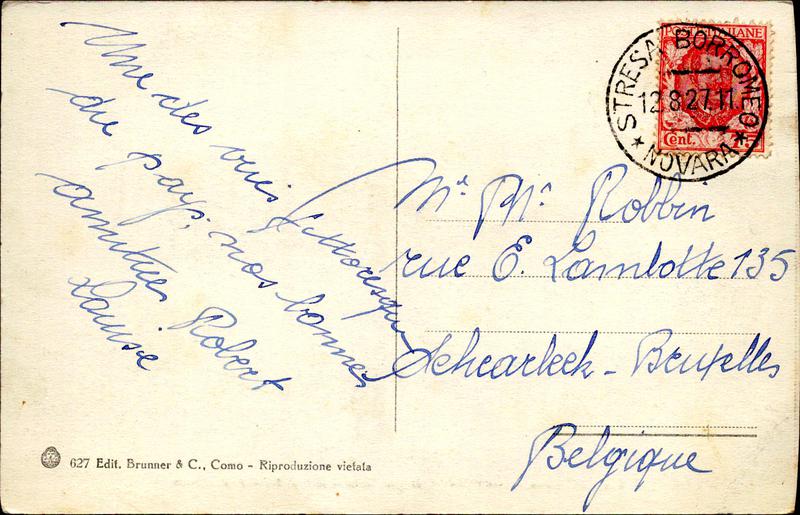 Une des vues pittoresques
du pays, nos bonnes
amitiés Robert
Louise
POSTE ITALIANE
Cent.
STRESA BORROMEO
12.8.27.11
* NOVARA *
Mr Ph. Robben
rue E. Lambotte 135
Schearbeek - Bruxelles
Belgique
627 Edit. Brunner & C., Como - Riproduzione vietata